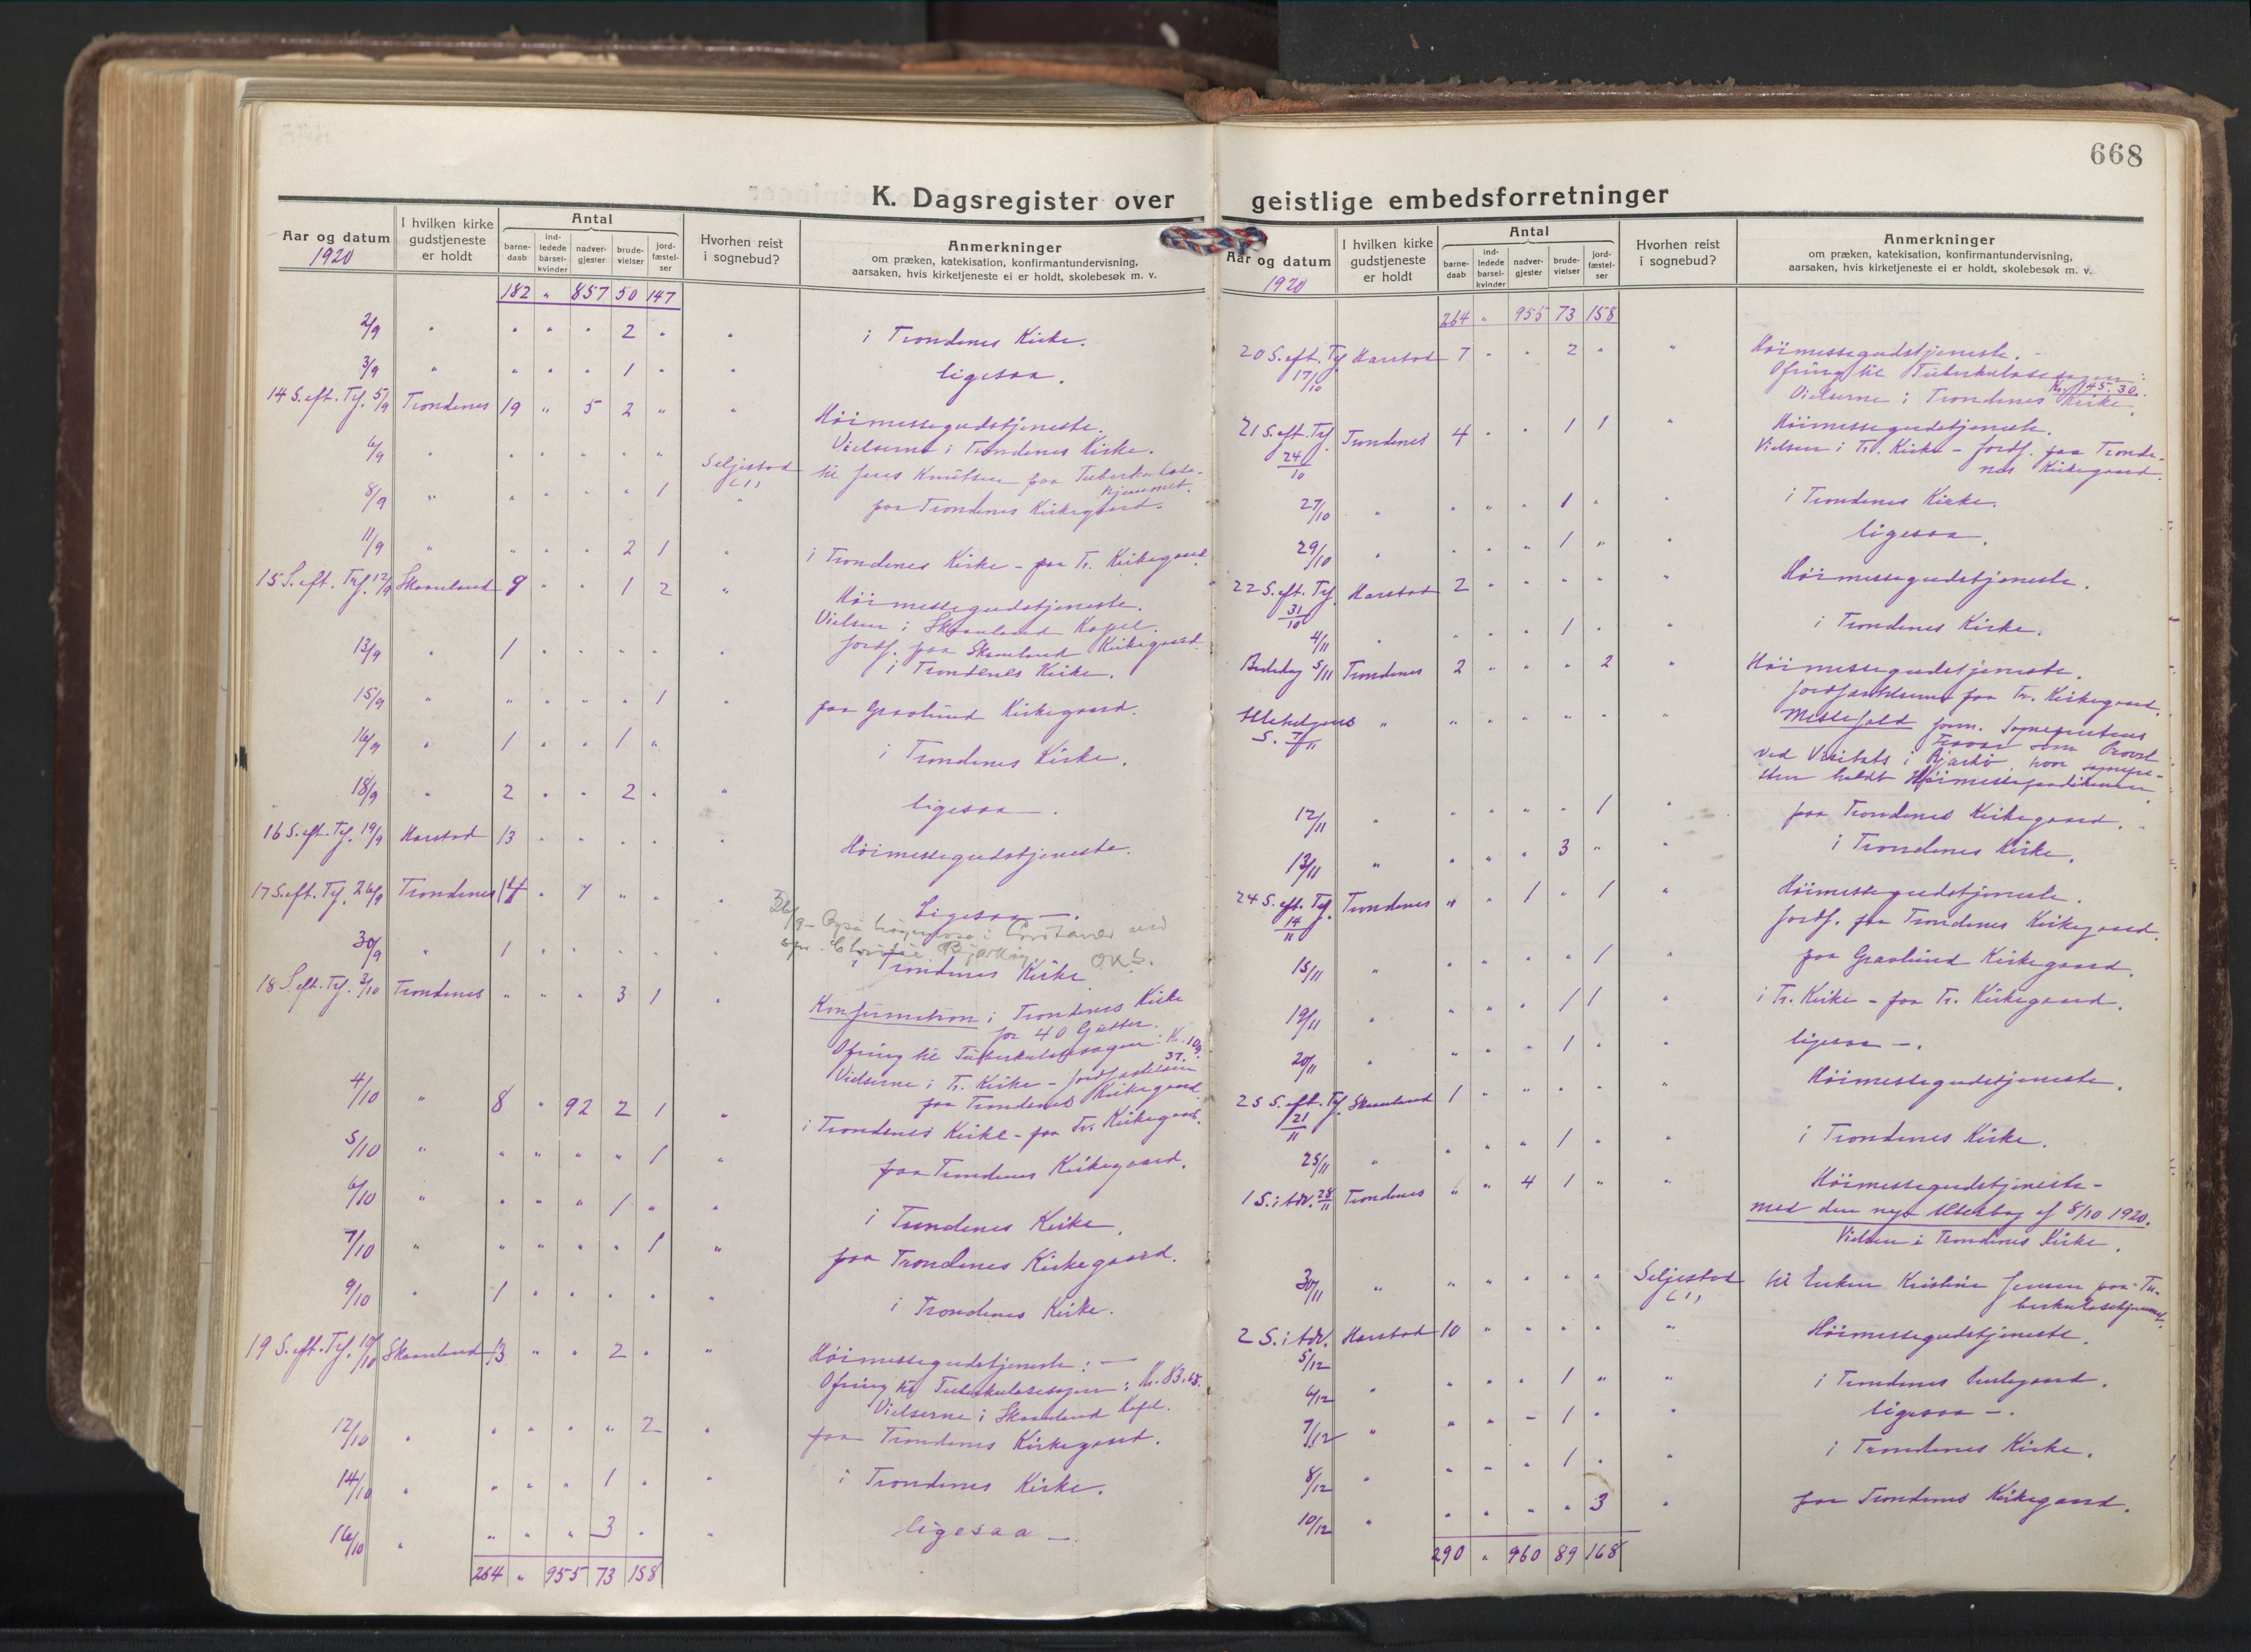 668
K. Dagsregister over geistlige embedsforretninger
Aar og datum
1920
I hvilken kirke gudstjeneste er holdt
Antal
barne-daab
ind-ledede barsel-kvinder
nadver-gjester
brude-vielser
jord-fæstel-ser
Hvorhen reist i sognebud?
Anmerkninger
om præken, katekisation, konfirmantundervisning,
aarsaken, hvis kirketjeneste ei er holdt, skolebesøk m. v.
182 " 857 50 147
2/9 " " " " 2 " " i Trondenes Kirke.
3/9 " " " " 1 " " ligesaa.
14 S. eft. Tr. 5/9 Trondenes 19 " 5 2 " " Höimessegudstjeneste.
Vielserne i Trondenes Kirke.
6/9 " " " " " " Seljestad (1) til Jens Knutsen paa Tuberkulose-
hjemmet.
8/9 " " " " " 1 " paa Trondenes Kirkegaard.
11/9 " " " " 2 1 " i Trondenes Kirke - paa Tr. Kirkegaard.
15 S. eft. Tr. 12/9 Skaanland 9 " " 1 2 " Höimessegudstjeneste.
Vielsen i Skaanland Kapel.
Jordf. paa Skaanland Kirkegaard.
13/9 " 1 " " " " " i Trondenes Kirke.
15/9 " " " " " 1 " paa Gravlund Kirkegaard.
16/9 " 1 " " 1 " i Trondenes Kirke.
18/9 " 2 " " 2 " " ligesaa -.
16 S. eft. Tr. 19/9 Harstad 13 " " " " " Höimessegudstjeneste.
17 S. eft. Tr. 26/9 Trondenes 14 " 7 " " " Ligesaa -.
26/9 - Også högmesse i ved
Bjarköy
30/9 " 1 " " " " " i Trondenes Kirke
18 S. eft. Tr. 3/10 Trondenes " " " 3 1 " Konfirmation i Trondenes Kirke
for 40 Gutter.
Ofring til Tuberkulosesagen: Kr. 109.
37.
Vielserne i Tr. Kirke - Jordfæstelsen
paa Trondenes Kirkegaard.
4/10 " 8 " 92 2 1 " i Trondenes Kirke - paa Tr. Kirkegaard.
5/10 " " " " " 1 " paa Trondenes Kirkegaard.
6/10 " " " " 1 " " i Trondenes Kirke.
7/10 " " " " " 1 " paa Trondenes Kirkegaard.
9/10 " 1 " " " " " i Trondenes Kirke.
19 S. eft. Tr. 10/10 Skaanland 13 " " 2 " " Höimessegudstjeneste: -
Ofring til Tuberkulosesagen: Kr. 83.65.
Vielserne i Skaanland Kapel.
12/10 " " " " " 2 " paa Trondenes Kirkegaard.
14/10 " " " " 1 " " i Trondenes Kirke.
16/10 " " " " 3 " " ligesaa -
264 " 955 73 158
Aar og datum
1920
I hvilken kirke gudstjeneste er holdt
Antal
barne-daab
ind-ledede barsel-kvinder
nadver-gjester
brude-vielser
jord-fæstel-ser
Hvorhen reist i sognebud?
Anmerkninger
om præken, katekisation, konfirmantundervisning,
aarsaken, hvis kirketjeneste ei er holdt, skolebesøk m. v.
264 " 955 73 158
20 S. eft. Tr. 17/10 Harstad 7 " " 2 " " Höimessegudstjeneste. -
Ofring til Tuberkulosesagen:
Kr. 145.30.
Vielserne i Trondenes Kirke.
21 S. eft. Tr. 24/10 Trondenes 4 " " 1 1 " Höimessegudstjeneste.
Vielsen i Tr. Kirke - Jordf. paa Tronde-
nes Kirkegaard.
27/10 " " " " 1 " " i Trondenes Kirke.
29/10 " " " " 1 " " ligesaa.
22 S. eft. Tr. 31/10 Harstad 2 " " " " " Höimessegudstjeneste.
4/11 " " " " 1 " " i Trondenes Kirke.
Bededag 5/11 Trondenes 2 " " " 2 " Höimessegudstjeneste.
Jordfæstelserne paa Tr. Kirkegaard.
Allehelgens S. 7/11 " " " " " " " Messefald form. Sogneprestens
Fravær som Provst
ved Visitats i Bjarkö, hvor sognepre-
sten holdt
12/11 " " " " " 1 " paa Trondenes Kirkegaard. -
13/11 " " " " 3 " " i Trondenes Kirke.
24 S. eft. Tr. 14/11 Trondenes " " 1 " 1 " Höimessegudstjeneste.
Jordf. paa Trondenes Kirkegaard.
15/11 " " " " " 1 " paa Gravlund Kirkegaard.
19/11 " " " " 1 1 " i Tr. Kirke - paa Tr. Kirkegaard.
20/11 " " " " 1 " " ligesaa -.
25 S. eft. Tr. 21/11 Skaanland 1 " " " " " Höimessegudstjeneste.
25/11 " " " " 1 " " i Trondenes Kirke.
1 S. i Adv. 28/11 Trondenes " " 4 1 " " Höimessegudstjeneste -
med den nye Alterbog af 8/10 1920.
Vielsen i Trondenes Kirke.
30/11 " " " " " " Seljestad (1) til Enken Kristine Jensen paa Tu-
berkulosehjemmet.
2 S. i Adv. 5/12 Harstad 10 " " " " " Höimessegudstjeneste.
6/12 " " " " 1 " " i Trondenes
7/12 " " " - 1 " " ligesaa -.
8/12 " " " " 1 " " i Trondenes Kirke.
10/12 " " " " " 3 " paa Trondenes Kirkegaard.
290 " 960 89 168